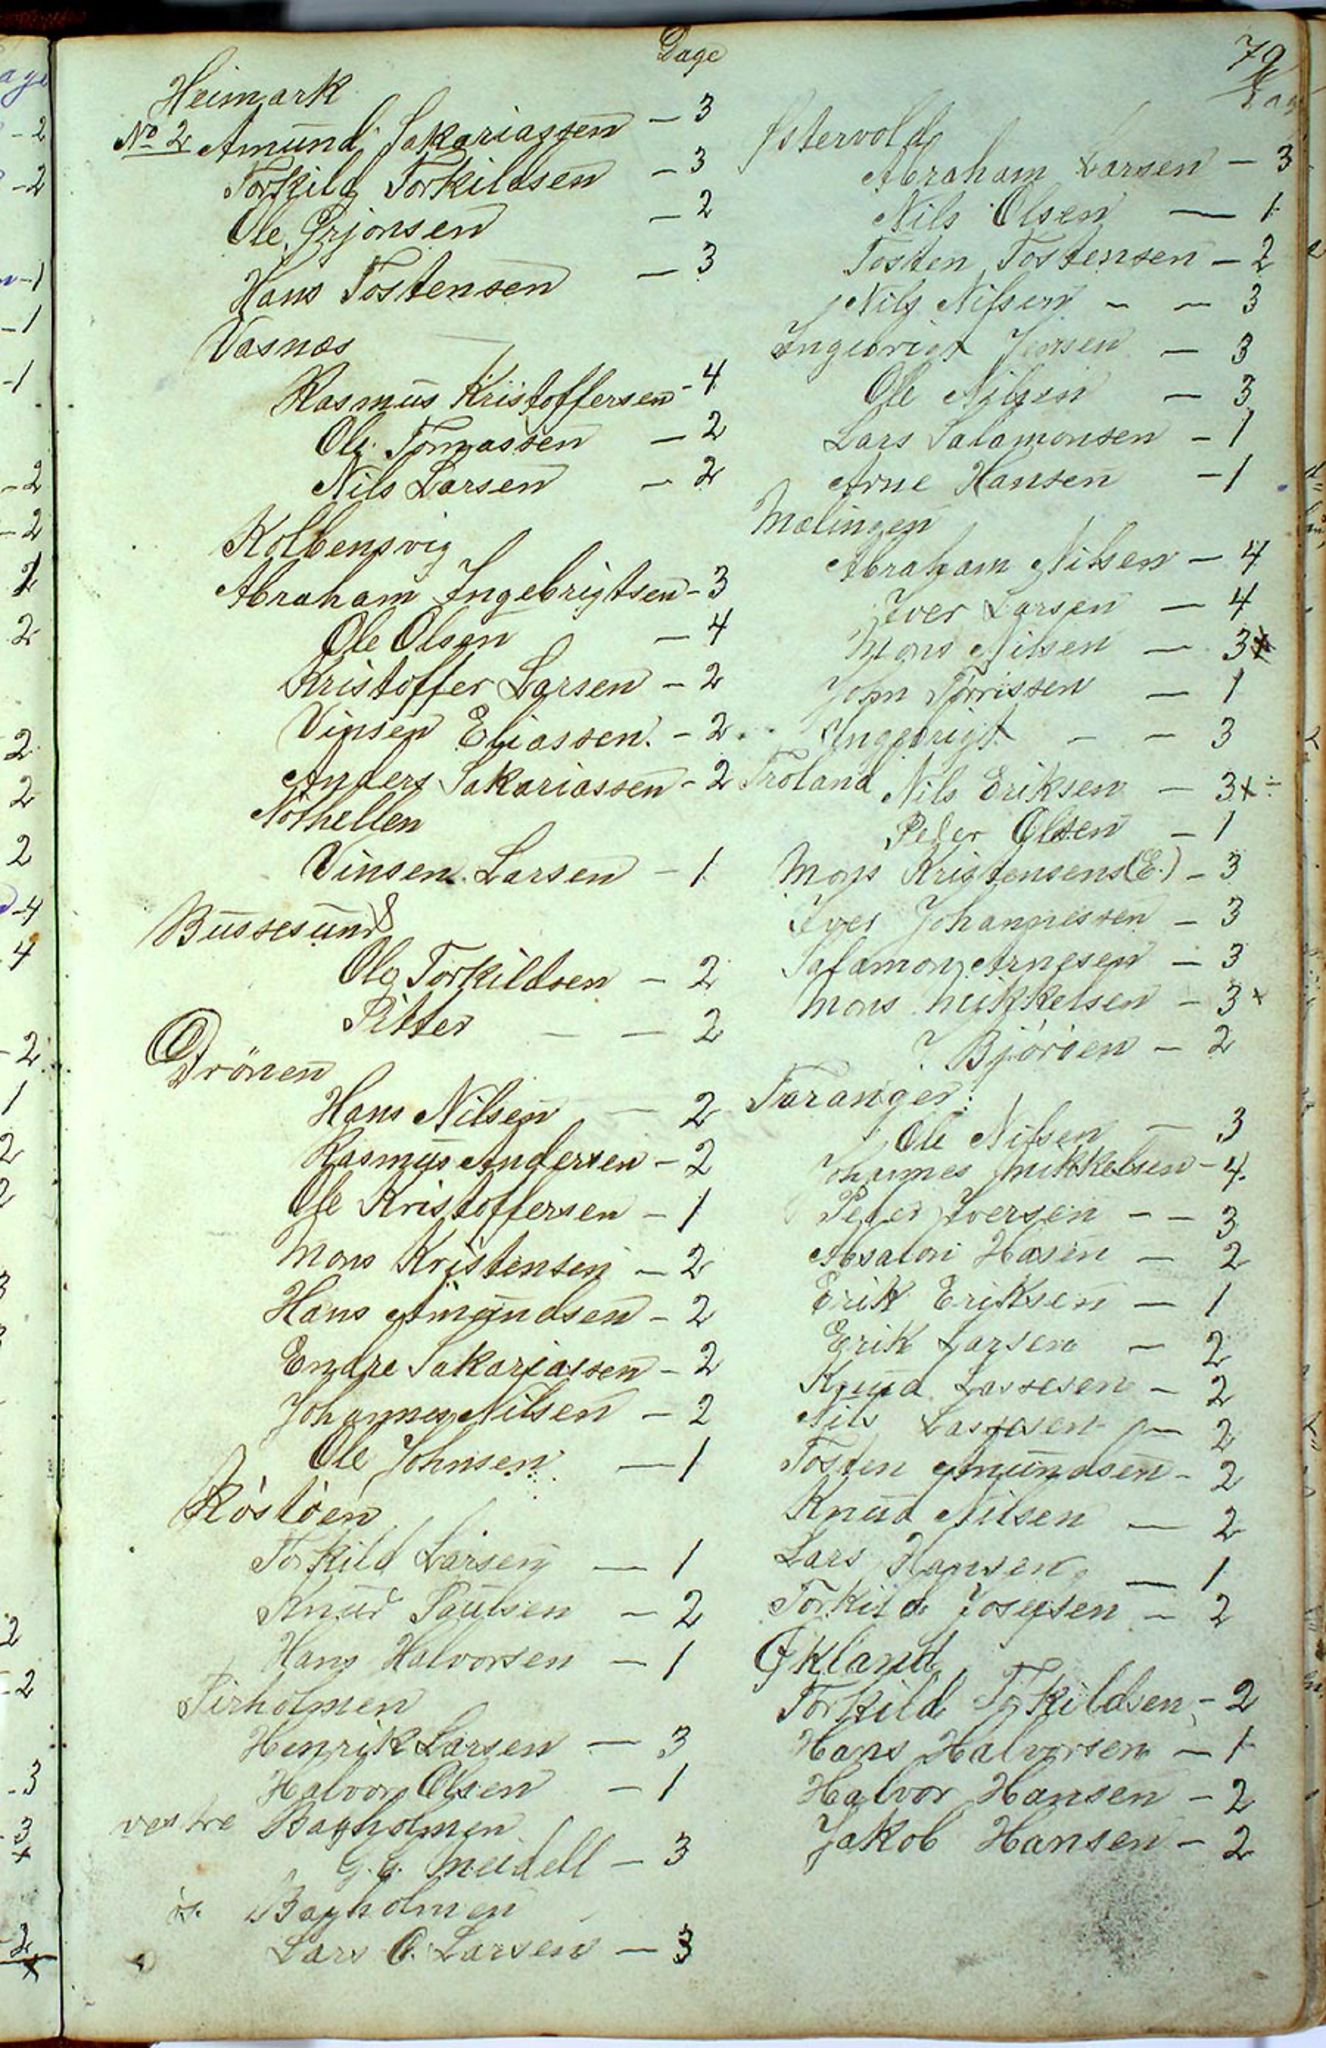 Dage
Heimark
No 2 Amund Sakariassen — 3
Torkild Torkildsen — 3
Ole Brjonsen — 2
Hans Tostensen — 3
Vasnæs
Rasmus Kristoffersen - 4
Ole Tomassen — 2
Nils Larsen — 2
Kolbensvig
Abraham Ingebrigtsen - 3
Ole Olsen — 4
Kristoffer Larsen — 2
Vinsen Eliassen. — 2
Anders Sakariassen - 2
Nóthellen
Vinsen Larsen — 1
Bussesund
Ole Torkildsen — 2
Pitter — — 2
Drönen
Hans Nilsen — 2
Rasmus Andersen — 2
Ole Kristoffersen — 1
Mons Kristensen — 2
Hans Amundsen — 2
Endre Sakariassen — 2
Johannes Nilsen — 2
Ole Johnsen — 1
Róstóen
Torkild Larsen — 1
Knud Paulsen — 2
Hans Halvorsen — 1
Tirholmen
Henrik Larsen — 3
Halvor Olsen — 1
vestre Bagholmen
G. G. Meidell — 3
ös. Bagholmen
Lars O. Larsen — 3
79
Dag
Østervold
Abraham Larsen — 3
Nils Olsen — 1
Tosten Tostensen — 2
Nils Nilsen — — 3
Ingebrigt — 3
Ole Nilsen — 3
Lars Salamonsen — 1
Arne Hansen — 1
Mælingen
Abraham Nilsen — 4
Iver Larsen — 4
Mons Nilsen — 3x
John Torrissen — 1
Inggbrigt — — 3
Troland Nils Eriksen — 3x÷
Peder Olsen — 1
Mons Kristensens (E.) — 3
Iver Johannessen — 3
Salamon Arnesen — 3
Mons Mikkelsen — 3x
? Björöen — 2
Taranger:
Ole Nilsen — 3
Johannes Mikkelsen — 4
Peder Iversen — — 3
Absalon Hasen — 2
Erik Eriksen — 1
Erik Larsen — 2
Knud Lassesen — 2
Nils Lassesen — 2
Tosten Amundsen — 2
Knud Nilsen — 2
Lars Hansen — 1
Torkild Josefsen — 2
Økland
Torkild Torkildsen — 2
Hans Halvorsen — 1
Halvor Hansen — 2
Jakob Hansen — 2